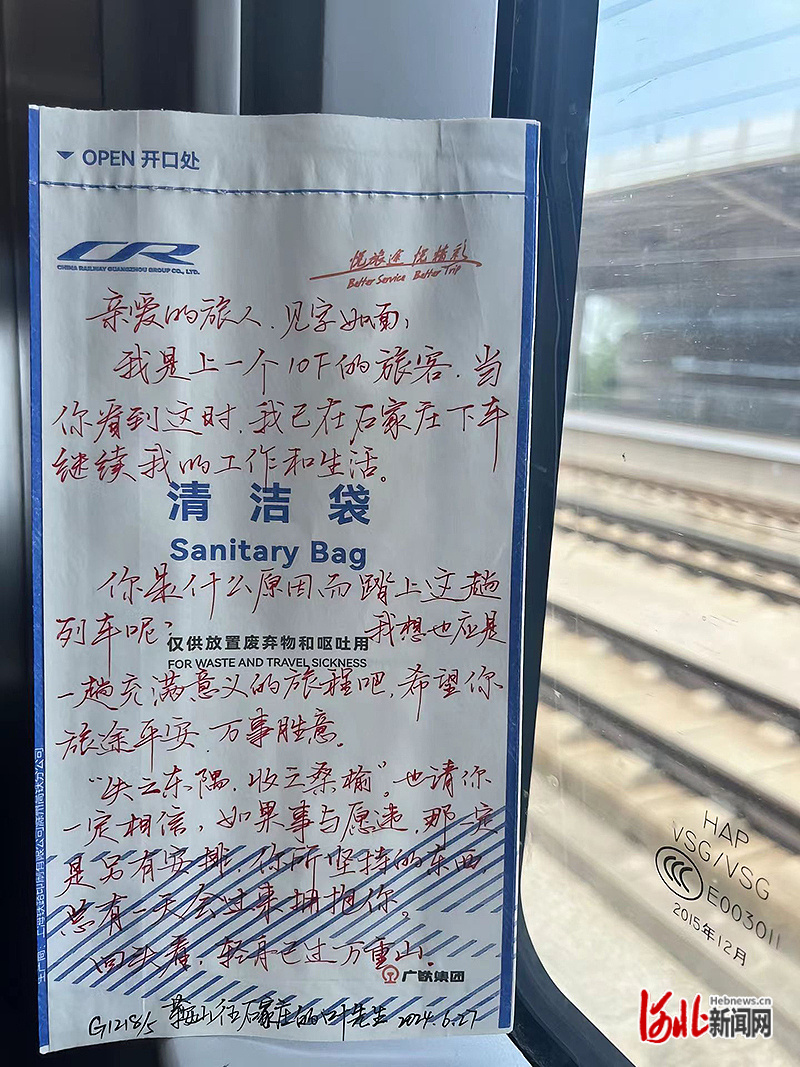 OPEN 开口处
CR
CHINA RAILWAY GUANGZHOU GROUP CO., LTD.
悦旅途 悦精彩
Better Service Better Trip
亲爱的旅人、见字如面，
我是上一个10F的旅客.当
你看到这时.我已在石家庄下车
继续我的工作和生活。
清洁袋
Sanitary Bag
你是什么原因而踏上这趟
列车呢？ 我想也应是
仅供放置废弃物和呕吐用
FOR WASTE AND TRAVEL SICKNESS
一趟充满意义的旅程吧,希望你
旅途平安.万事胜意.
“失之东隅,收之桑榆”。也请你
一定相信，如果事与愿违,那一定
是另有安排,你所坚持的东西,
总有一天会过来拥抱你。
回头看，轻舟已过万重山.
广铁集团
G1218/5 鞍山往石家庄的叶先生 2024.6.27
HAP
VSG/VSG
CCC
E003011
2015年12月
Hebnews.cn
河北新闻网